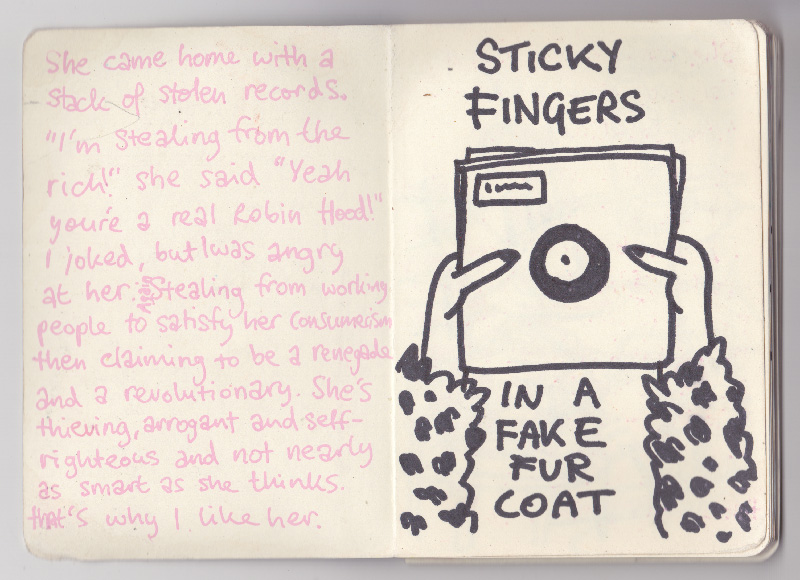 She came home with a
stack of stolen records.
"I'm stealing from the
rich!" she said "Yeah
you're a real Robin Hood!"
I joked, but I was angry
at her. Stealing from working
people to satisfy her consumerism
then claiming to be a renegade
and a revolutionary. She's
thieving, arrogant and self-
righteous and not nearly
as smart as she thinks.
that's why I like her.
STICKY
FINGERS
IN A
FAKE
FUR
COAT